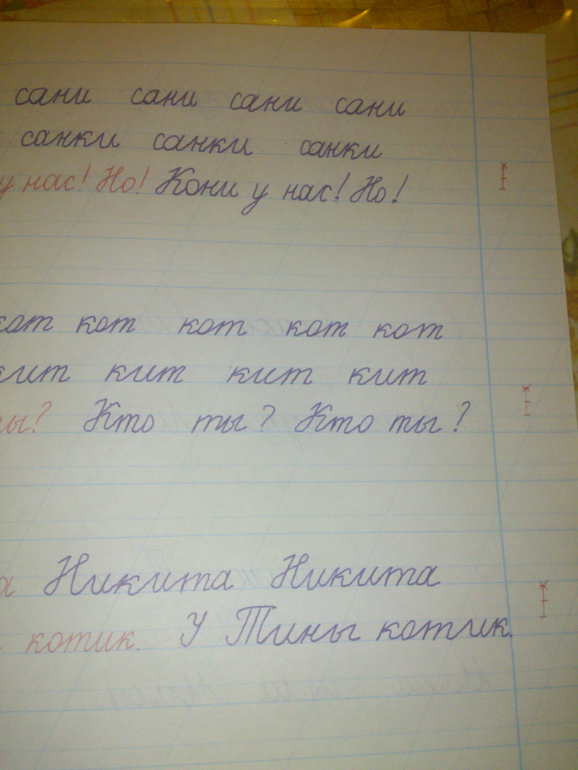 сани сани сани сани
санки санки санки
у нас! Но! Кони у нас! Но!
кот кот кот кот кот
кит кит кит кит
ты? Кто ты? Кто ты?
Никита Никита
котик. У Тины котик.